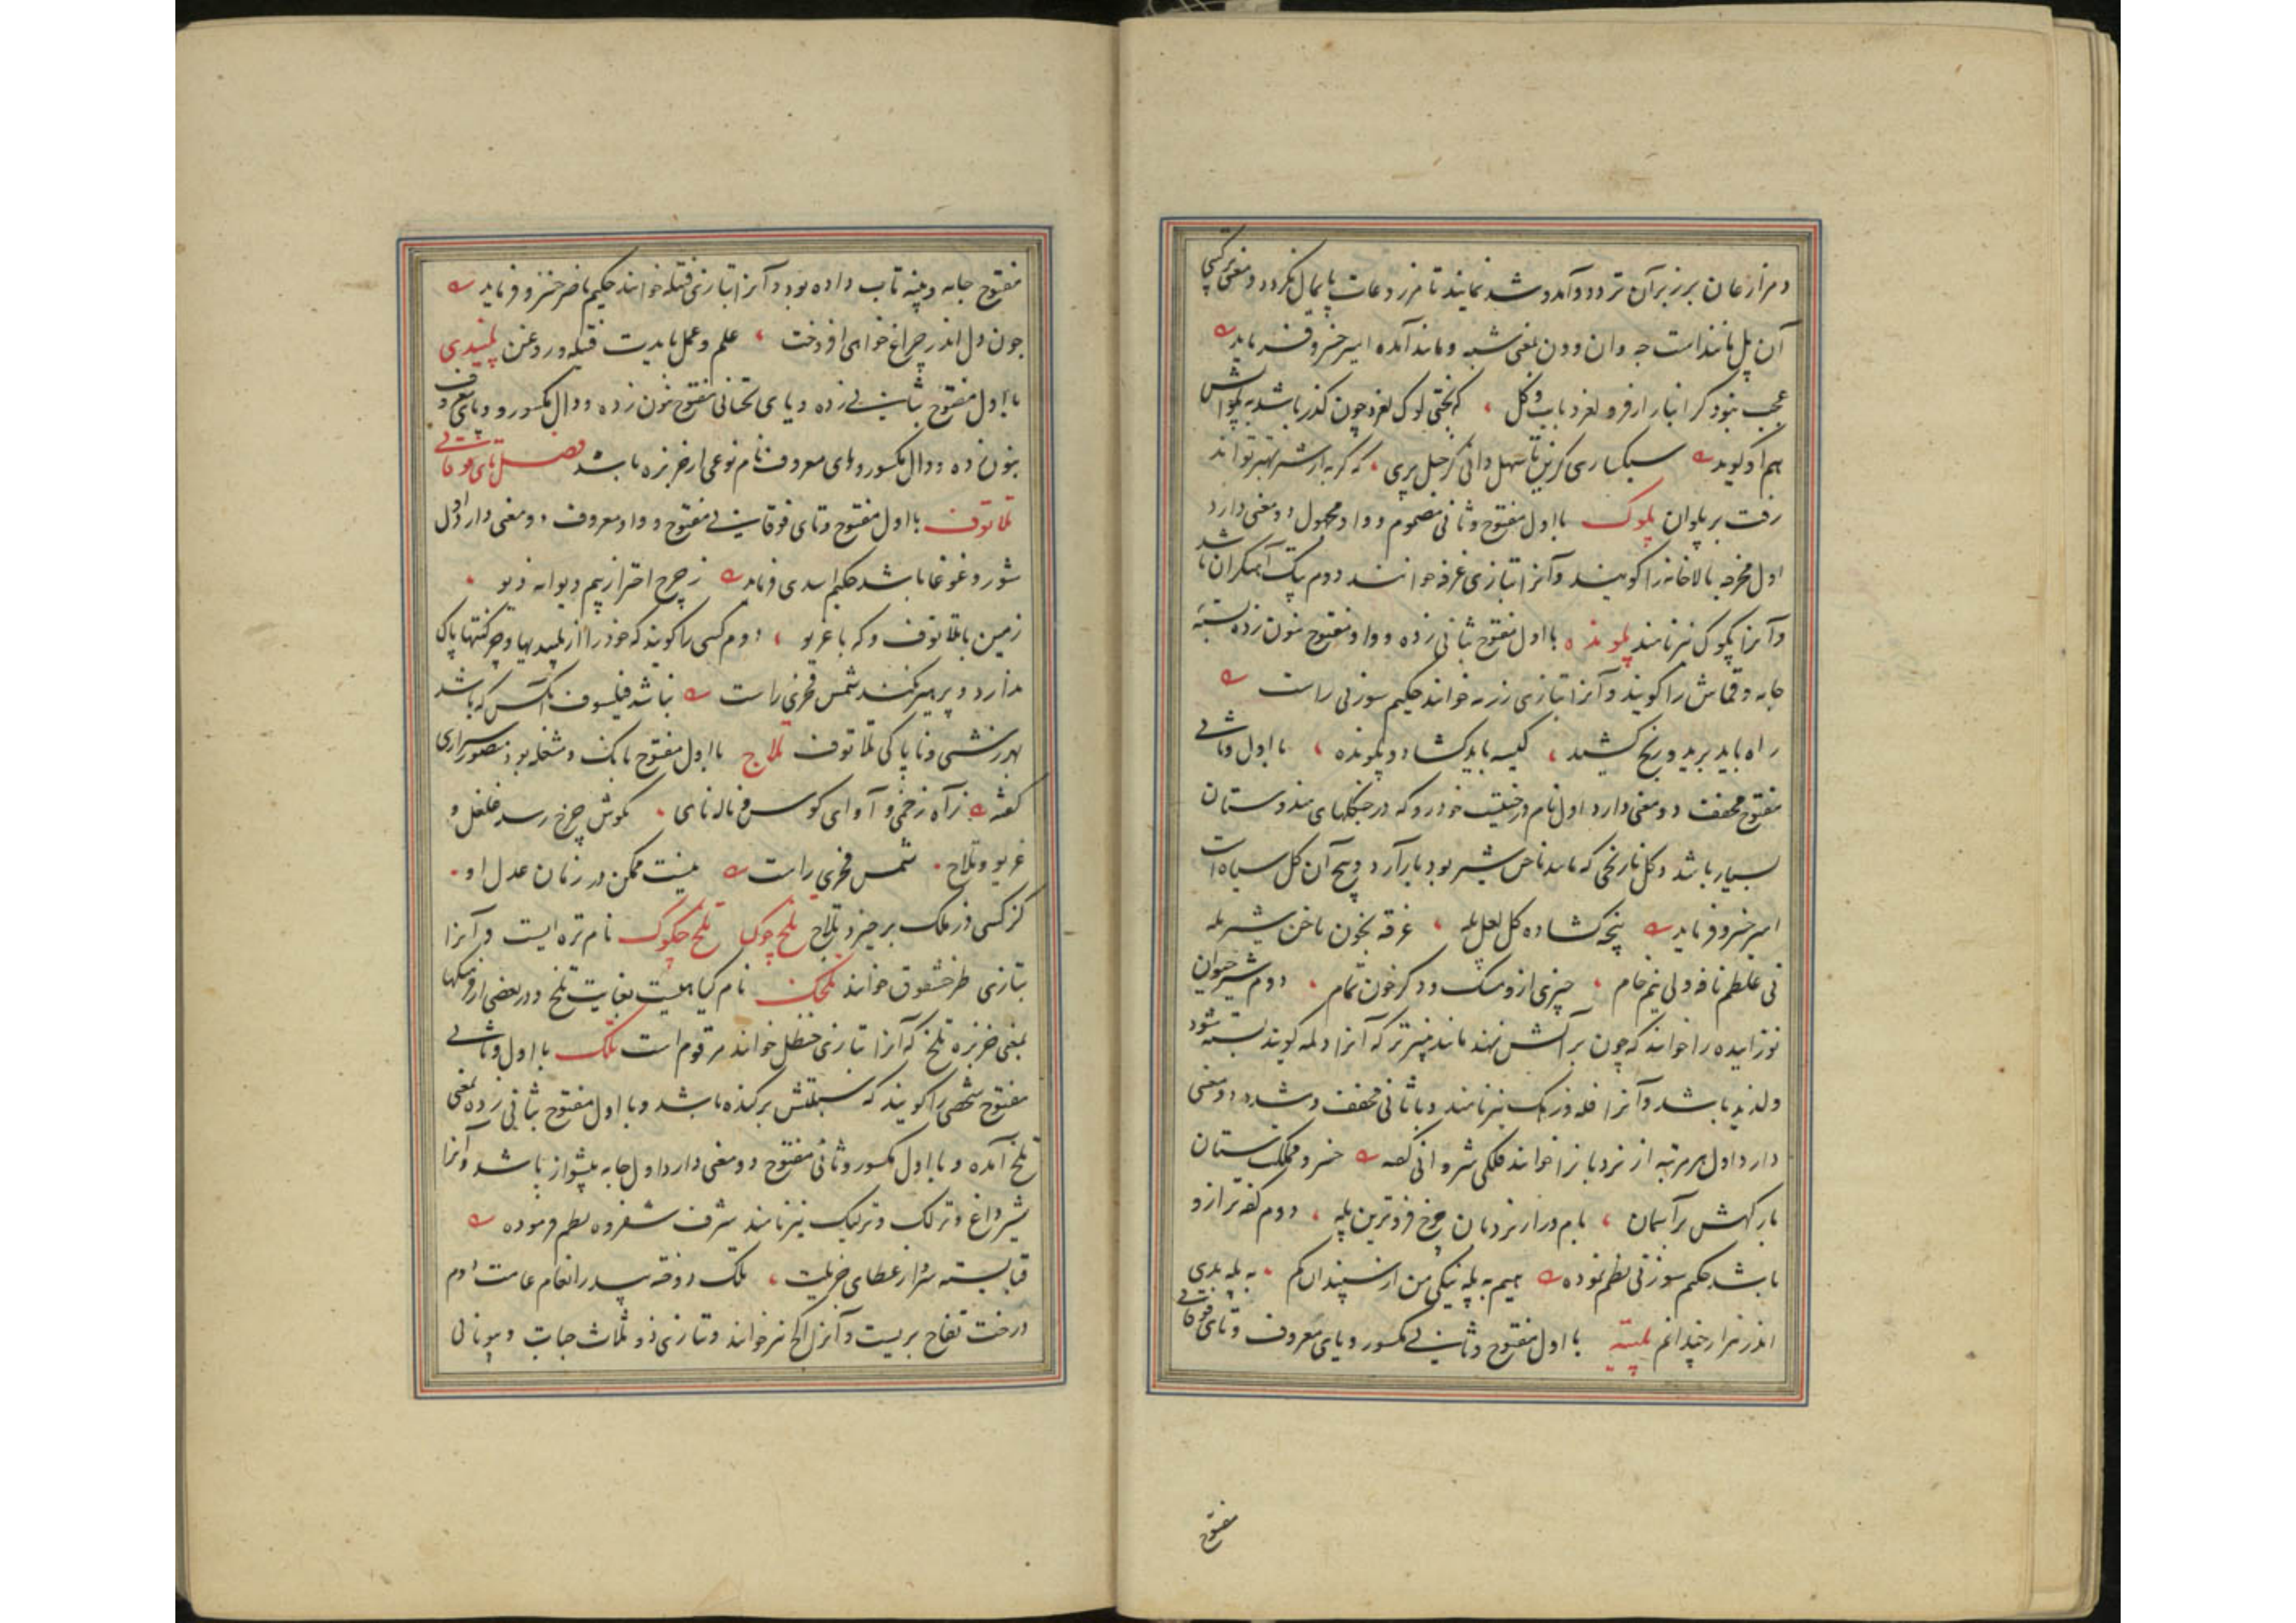 و مزارعان برزبر آن تردد و آمد و شد نمایند تا مزروعات پایمال نگردد و معنی ترکیبی
آن پل مانند است چه وان و ون بمعنی شبه و مانند آمده امیر خسرو فرماید
عجب نبود گر انبار ار فرو لغزد بآب و گل کبختی لوک لغزد چون گذر باشد به پلوانش
هم او گوید سبکباری گزین تا سهل دانی کز جبل پری که گربه از شتر بهتر تواند
رفت بر پلوان پلوک بااول مفتوح و ثانی مضموم و واو مجهول دو معنی دارد
اول مخرجه بالاخانه را گویند و آنرا بتازی غرفه خوانند دوم پتک آهنگران باشد
و آنرا پکوک نیز نامند پلونده بااول مفتوح ثانی زده و واو مفتوح بنون زده بسته
جامه و قماش را گویند و آنرا بتازی رزمه خوانند حکیم سوزنی راست
راه باید برید و رنج کشید کیسه باید گشاد و پلونده بااول و ثانی
مفتوح مخفف دو معنی دارد اول نام درختیست خودرو که در جنگلهای هندوستان
بسیار باشد و گل نارنجی که مانند ناخن شیر بود بار آرد و بیخ آن گل سیاه است
امیر خسرو فرماید پنجه گشاده گل لعل پله غرقه بخون ناخن شیر یله
نی غلطم نافه ولی نیم خام چیزی ازو مشک و دگر خون تمام دوم شیر حیوان
نوزاییده را خوانند که چون بر آتش نهند مانند پنیر تر که آنرا دلمه گویند بسته شود
و لذیذ باشد و آنرا فله و زمک نیز نامند و با ثانی مخفف و مشدد دو معنی
دارد اول هر مرتبه از نردبانرا خوانند فلکی شروانی گفته خسرو مملکت ستان
بارگهش بر آسمان بام ورا ز نردبان چرخ فروترین پله دوم کفه ترازو
باشد حکیم سوزنی نظم نموده هیم به پله نیکی من از سپندان کم به پله بدی
اندر هزار چندانم پلیته بااول مفتوح و ثانی مکسور و یای معروف و تای فوقانی
مفتوح
مفتوح جامه و پنبه تاب داده بود و آنرا بتازی فتیله خوانند حکیم ناصر خسرو فرماید
چون دل اندر چراغ خواهی افروخت علم و عمل بایدت فتیله و روغن پلیندی
بااول مفتوح بثانی زده و یای تحتانی مفتوح بنون زده و دال مکسور و یای معروف
بنون زده و دال مکسور و یای معروف نام نوعی از خربزه باشد فصل تای فوقانی
تلاتوف بااول مفتوح و تای فوقانی مفتوح و واو معروف دو معنی دارد اول
شور و غوغا باشد حکیم اسدی فرماید ز چرخ احتراز بیم دیوانه دیو
زمین با تلاتوف و که با غریو دوم کسی را گویند که خود را از پلیدیها و چرکنتها پاک
ندارد و پرهیز نکند شمس فخری راست نباشد فیلسوف آنکس که باشد
بهر زشتی و ناپاکی تلاتوف تلاج بااول مفتوح بانگ و مشغله بود منصور شیرازی
گفته ز آه زخمی و آوای کوس و ناله نای بگوش چرخ رسد غلغل و
غریو و تلاج شمس فخری راست نیست ممکن در زمان عدل او
کز کسی در ملک برخیزد تلاج تلخ جوک تلخ جکوک نام تره ایست و آنرا
بتازی طرخشقوق خوانند تلخک نام گیاهیست بغایت تلخ و در بعضی از فرهنگها
بمعنی خربزه تلخ که آنرا بتازی حنظل خوانند مرقوم است تلک بااول و ثانی
مفتوح شخصی را گویند که سبلتش برکنده باشد و بااول مفتوح بثانی زده بمعنی
تلخ آمده و بااول مکسور و ثانی مفتوح دو معنی دارد اول جامه پیشواز باشد و آنرا
شیرداغ و ترلک و ترلیک نیز نامند شرف شفروه نظم فرموده
قبا بسته سزاوار عطای خربت تلک دوخته پسد رانعام عامت دوم
درخت تفاح بریست و آنرا الج نیز خوانند و بتازی ذو ثلاث حبات و یونانی